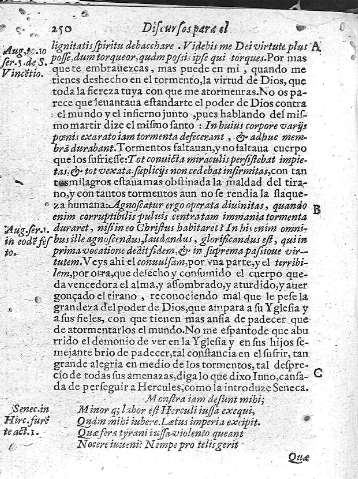 250 Discursos para el
Aug. to. 10
ser. 3. de S.
Vincẽtio.
lignitatis spiritu debacchare. Videbis me Dei virtute plus A
posse, dum torqueor, quàm possis ipse qui torques. Por mas
que te embrauezcas, mas puede en mi, quando me
tienes deshecho en el tormento, la virtud de Dios, que
toda la fiereza tuya con que me atormentas. No os pa-
rece que leuantaua estandarte el poder de Dios contra
el mundo y el infierno junto, pues hablando del mis-
mo martir dize el mismo santo: In huius corpore varijs
pœnis exarato iam tormenta defecerant, & adhuc mem-
bra durabant. Tormentos faltauan, y no faltaua cuerpo
que los sufriesse: Tot conuicta miraculis persistebat impie-
tas, & tot vexata suplicijs non cedebat infirmitas, con tan
tos milagros estaua mas obstinada la maldad del tira-
no, y con tantos tormentos aun no se rendia la flaque-
za humana. Agnoscatur ergo operata diuinitas, quando
B
enim corruptibilis puluis contra tam immania tormenta
Aug. ser. 1.
in eodẽ fes
to.
duraret, nisi in eo Christus habitaret? In his enim omni-
bus ille agnoscendus, laudandus, glorificandus est, qui in
prima vocatione dedit fidem, & in suprema passione vir-
tutem. Veys ahi el consulsam, por vna parte, y el terribi-
lem, por otra, que deshecho y consumido el cuerpo que-
da vencedora el alma, y assombrado, y aturdido, y auer
gonçado el tirano, reconociendo mal que le pese la
grandeza del poder de Dios, que ampara a su Yglesia y
a sus fieles, con que tienen mas ansia de padecer que
de atormentarlos el mundo. No me espanto de que abu
rrido el demonio de ver en la Yglesia y en sus hijos se-
mejante brio de padecer, tal constancia en el sufrir, tan
grande alegria en medio de los tormentos, tal despre-
C
cio de todas sus amenazas, diga lo que dixo Iuno, cansa-
da de perseguir a Hercules, como la introduze Seneca.
Senec. in
Herc. furẽ
te act. 1.
Monstra iam desunt mihi;
Minor q; labor est Herculi iussa exequi,
Quàm mihi iubere. Lætus imperia excipit.
Quæ fera tyrani iussa violento queant
Nocere iuueni? Nempe pro telis gerit
Quæ